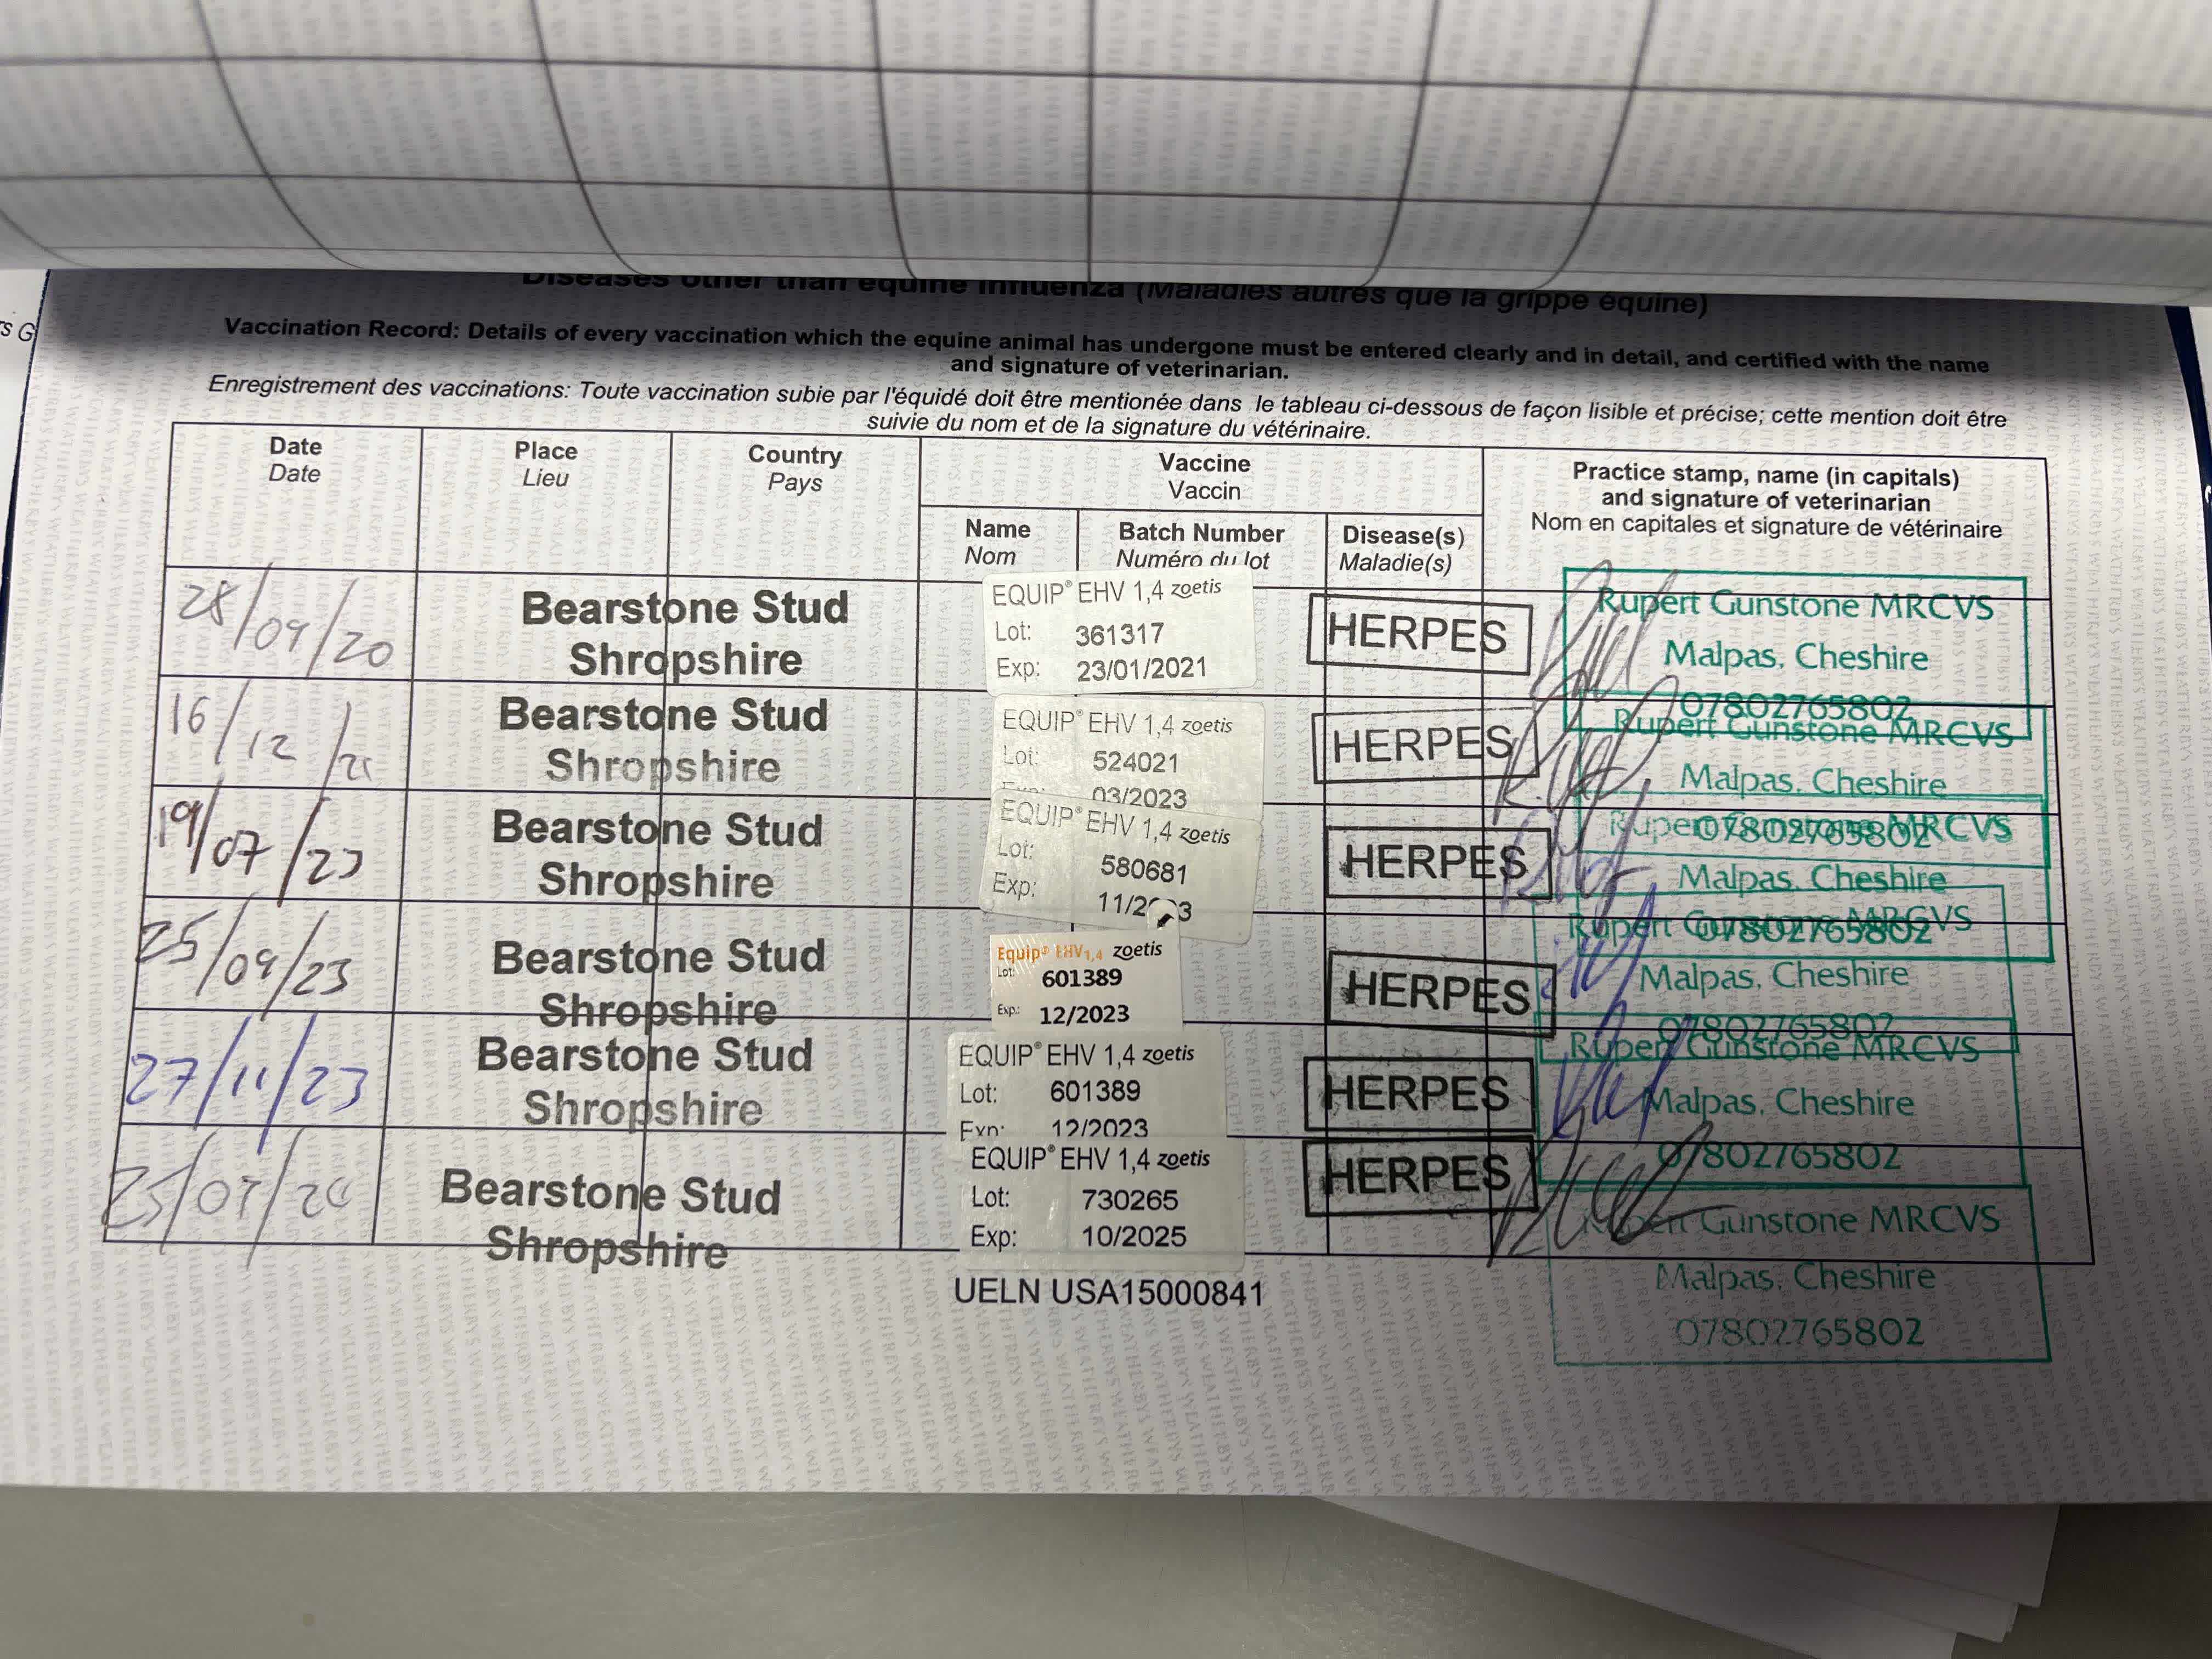 Diseases other than equine influenza (Maladies autres que la grippe équine)
Vaccination Record: Details of every vaccination which the equine animal has undergone must be entered clearly and in detail, and certified with the name
and signature of veterinarian.
Enregistrement des vaccinations: Toute vaccination subie par l'équidé doit être mentionée dans le tableau ci-dessous de façon lisible et précise; cette mention doit être
suivie du nom et de la signature du vétérinaire.
Date
Date
Place
Lieu
Country
Pays
Vaccine
Vaccin
Name
Nom
Batch Number
Numéro du lot
Disease(s)
Maladie(s)
Practice stamp, name (in capitals)
and signature of veterinarian
Nom en capitales et signature de vétérinaire
28/09/20
Bearstone Stud
Shropshire
EQUIP® EHV 1,4 zoetis
Lot: 361317
Exp: 23/01/2021
HERPES
Rupert Gunstone MRCVS
Malpas, Cheshire
07802765802
16/12/21
Bearstone Stud
Shropshire
EQUIP® EHV 1,4 zoetis
Lot: 524021
Exp: 03/2023
HERPES
Rupert Gunstone MRCVS
Malpas, Cheshire
07802765802
19/07/23
Bearstone Stud
Shropshire
EQUIP® EHV 1,4 zoetis
Lot: 580681
Exp: 11/2023
HERPES
Rupert Gunstone MRCVS
Malpas, Cheshire
07802765802
25/09/23
Bearstone Stud
Shropshire
Equip® EHV1,4 zoetis
Lot: 601389
Exp.: 12/2023
HERPES
Rupert Gunstone MRCVS
Malpas, Cheshire
07802765802
27/11/23
Bearstone Stud
Shropshire
EQUIP® EHV 1,4 zoetis
Lot: 601389
Exp: 12/2023
HERPES
Rupert Gunstone MRCVS
Malpas, Cheshire
07802765802
Bearstone Stud
Shropshire
EQUIP® EHV 1,4 zoetis
Lot: 730265
Exp: 10/2025
HERPES
Rupert Gunstone MRCVS
Malpas, Cheshire
07802765802
UELN USA15000841